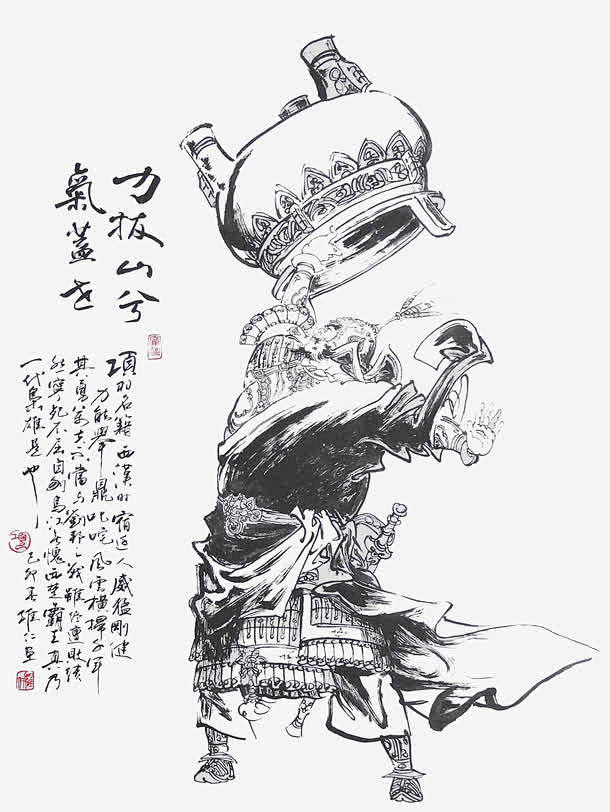 力拔山兮
氣蓋世
項羽名籍西漢时宿迁人威猛剛健
力能舉鼎叱咤風雲橫掃千軍
其勇萬夫不當与劉邦之戰雖終遭敗績
然寧死不屈自刎烏江無愧西楚霸王真乃
一代梟雄是也
己卯春雄仁